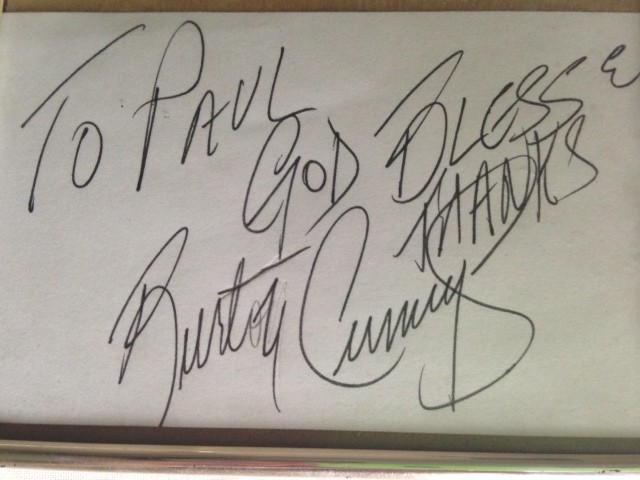 To PAUL
GOD BLESS &
THANKS
Burton Cummings